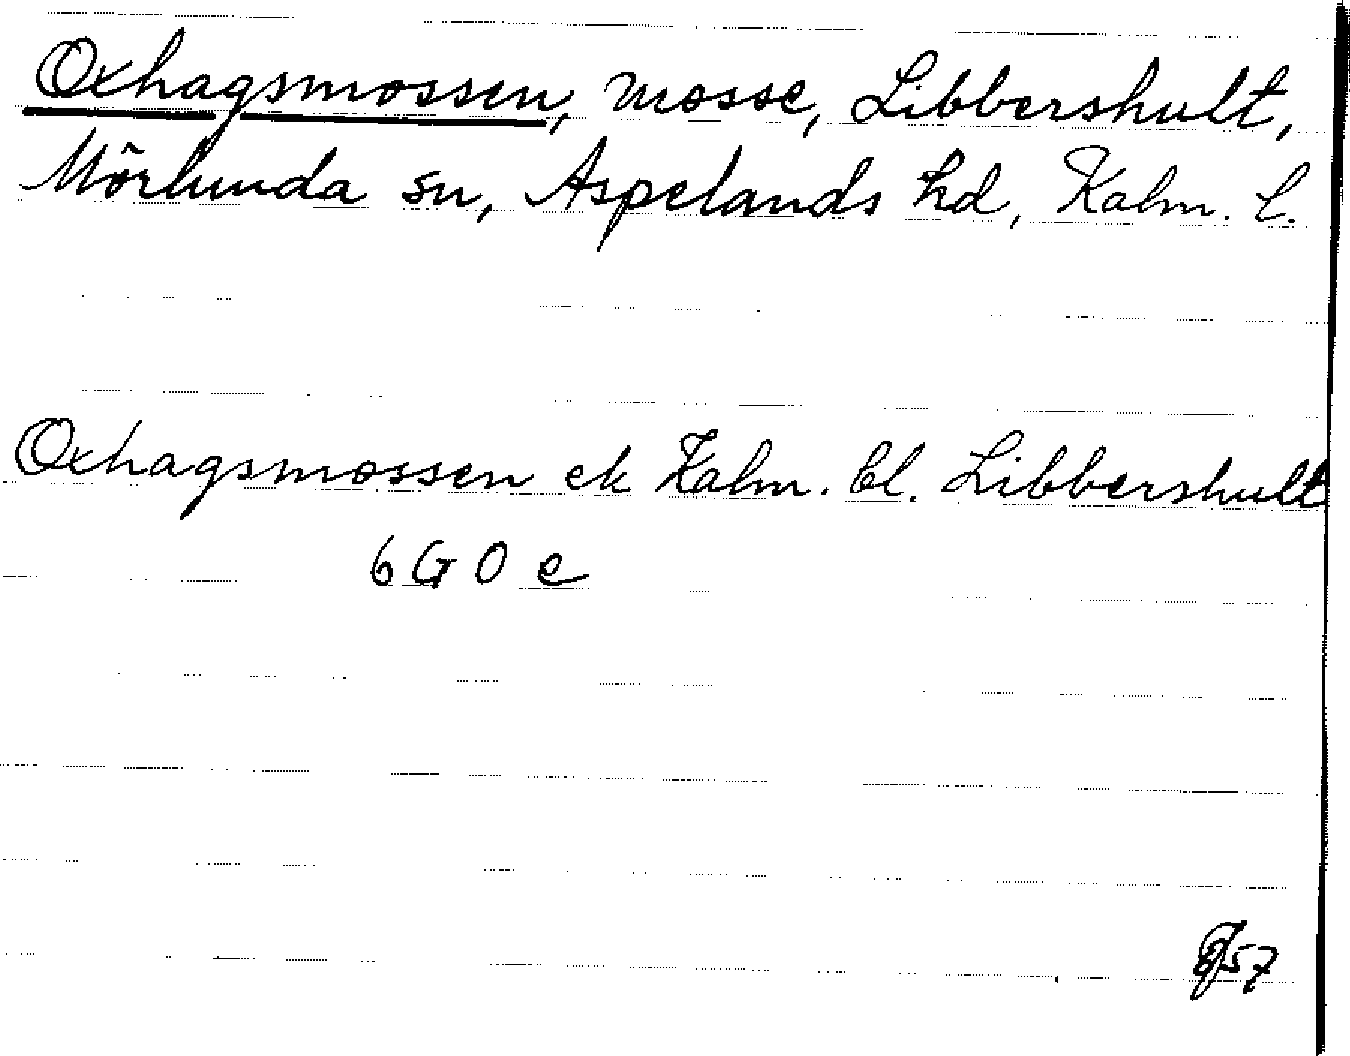 Oxhagsmossen, mosse, Libbershult,
Mörlunda sn, Aspelands hd, Kalm. l.
Oxhagsmossen ek Kalm. bl. Libbershult
6 G 0 e
57